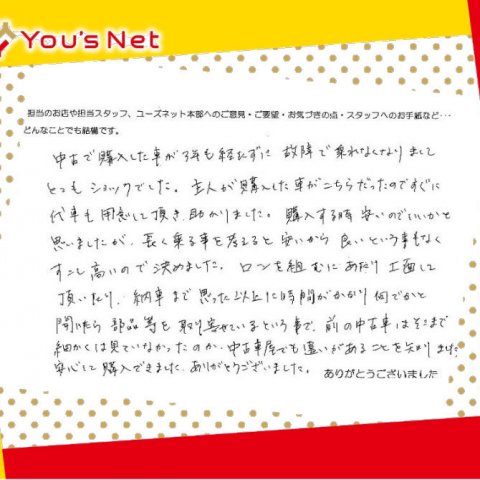 You's Net
担当のお店や担当スタッフ、ユーズネット本部へのご意見・ご要望・お気づきの点・スタッフへのお手紙など…
どんなことでも結構です。
中古で購入した車が3年も経たずに故障で乗れなくなりまして
とてもショックでした。主人が購入した車がこちらだったのですぐに
代車も用意して頂き助かりました。購入する時安いのでいいかと
思いましたが、長く乗る事を考えると安いから良いという事もなく
すこし高いので決めました。ロンを組むにあたり工面して
頂いたり、納車まで思った以上に時間がかかり何でかと
聞いたら部品等を取り寄せているという事で、前の中古車はそこまで
細かくは見ていなかったのか、中古車屋でも違いがあることを知りました。
安心して購入できました。ありがとうございました。
ありがとうございました